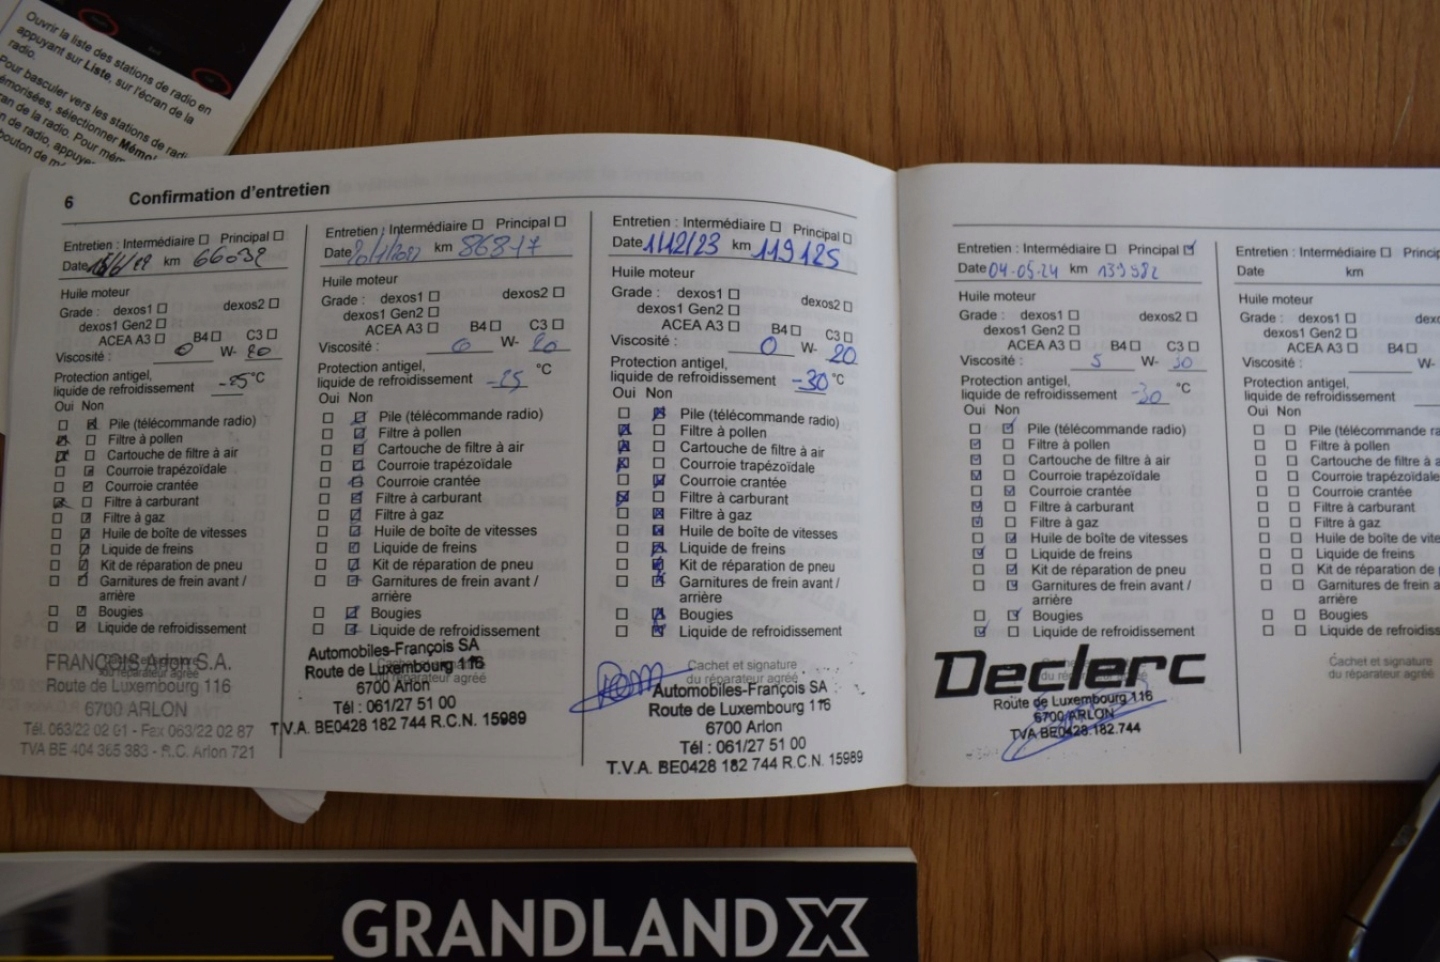 Ouvrir la liste des stations de radio en
appuyant sur Liste, sur l'écran de la
radio.
Pour basculer vers les stations de radi
émorisées, sélectionner Mémo
ran de la radio. Pour mém
n de radio, appuye
outon de m
6 Confirmation d'entretien
Entretien : Intermédiaire ☐ Principal ☐
km 66032
Huile moteur
Grade : dexos1 ☐ dexos2 ☐
dexos1 Gen2 ☐
ACEA A3 ☐ B4 ☐ C3 ☐
Viscosité : 0 W- 20
Protection antigel,
liquide de refroidissement -25 °C
Oui Non
Pile (télécommande radio)
Filtre à pollen
Cartouche de filtre à air
Courroie trapézoïdale
Courroie crantée
Filtre à carburant
Filtre à gaz
Huile de boîte de vitesses
Liquide de freins
Kit de réparation de pneu
Garnitures de frein avant /
arrière
Bougies
Liquide de refroidissement
du réparateur agréé
FRANÇOIS Arlon S.A.
Route de Luxembourg 116
6700 ARLON
Tél. 063/22 02 61 - Fax 063/22 02 87
TVA BE 404 365 383 - R.C. Arlon 721
Entretien : Intermédiaire ☐ Principal ☐
Date km 86817
Huile moteur
Grade : dexos1 ☐ dexos2 ☐
dexos1 Gen2 ☐
ACEA A3 ☐ B4 ☐ C3 ☐
Viscosité : 0 W- 20
Protection antigel,
liquide de refroidissement -25 °C
Oui Non
Pile (télécommande radio)
Filtre à pollen
Cartouche de filtre à air
Courroie trapézoïdale
Courroie crantée
Filtre à carburant
Filtre à gaz
Huile de boîte de vitesses
Liquide de freins
Kit de réparation de pneu
Garnitures de frein avant /
arrière
Bougies
Liquide de refroidissement
Automobiles-François SA
Route de Luxembourg 116
6700 Arlon
Tél : 061/27 51 00
T.V.A. BE0428 182 744 R.C.N. 15989
Entretien : Intermédiaire ☐ Principal ☐
Date 1/12/23 km 119125
Huile moteur
Grade : dexos1 ☐ dexos2 ☐
dexos1 Gen2 ☐
ACEA A3 ☐ B4 ☐ C3 ☐
Viscosité : 0 W- 20
Protection antigel,
liquide de refroidissement -30 °C
Oui Non
Pile (télécommande radio)
Filtre à pollen
Cartouche de filtre à air
Courroie trapézoïdale
Courroie crantée
Filtre à carburant
Filtre à gaz
Huile de boîte de vitesses
Liquide de freins
Kit de réparation de pneu
Garnitures de frein avant /
arrière
Bougies
Liquide de refroidissement
Cachet et signature
du réparateur agréé
Automobiles-François SA
Route de Luxembourg 116
6700 Arlon
Tél : 061/27 51 00
T.V.A. BE0428 182 744 R.C.N. 15989
Entretien : Intermédiaire ☐ Principal ☑
Date 04-05-24 km 139982
Huile moteur
Grade : dexos1 ☐ dexos2 ☐
dexos1 Gen2 ☐
ACEA A3 ☐ B4 ☐ C3 ☐
Viscosité : 5 W- 30
Protection antigel,
liquide de refroidissement -30 °C
Oui Non
Pile (télécommande radio)
Filtre à pollen
Cartouche de filtre à air
Courroie trapézoïdale
Courroie crantée
Filtre à carburant
Filtre à gaz
Huile de boîte de vitesses
Liquide de freins
Kit de réparation de pneu
Garnitures de frein avant /
arrière
Bougies
Liquide de refroidissement
Declerc
Route de Luxembourg 116
6700 ARLON
TVA BE0428.182.744
Entretien : Intermédiaire ☐ Princip
Date km
Huile moteur
Grade : dexos1 ☐ dexo
dexos1 Gen2 ☐
ACEA A3 ☐ B4 ☐
Viscosité : W-
Protection antigel,
liquide de refroidissement
Oui Non
Pile (télécommande ra
Filtre à pollen
Cartouche de filtre à a
Courroie trapézoïdale
Courroie crantée
Filtre à carburant
Filtre à gaz
Huile de boîte de vite
Liquide de freins
Kit de réparation de
Garnitures de frein a
arrière
Bougies
Liquide de refroidiss
Cachet et signature
du réparateur agréé
GRANDLAND X